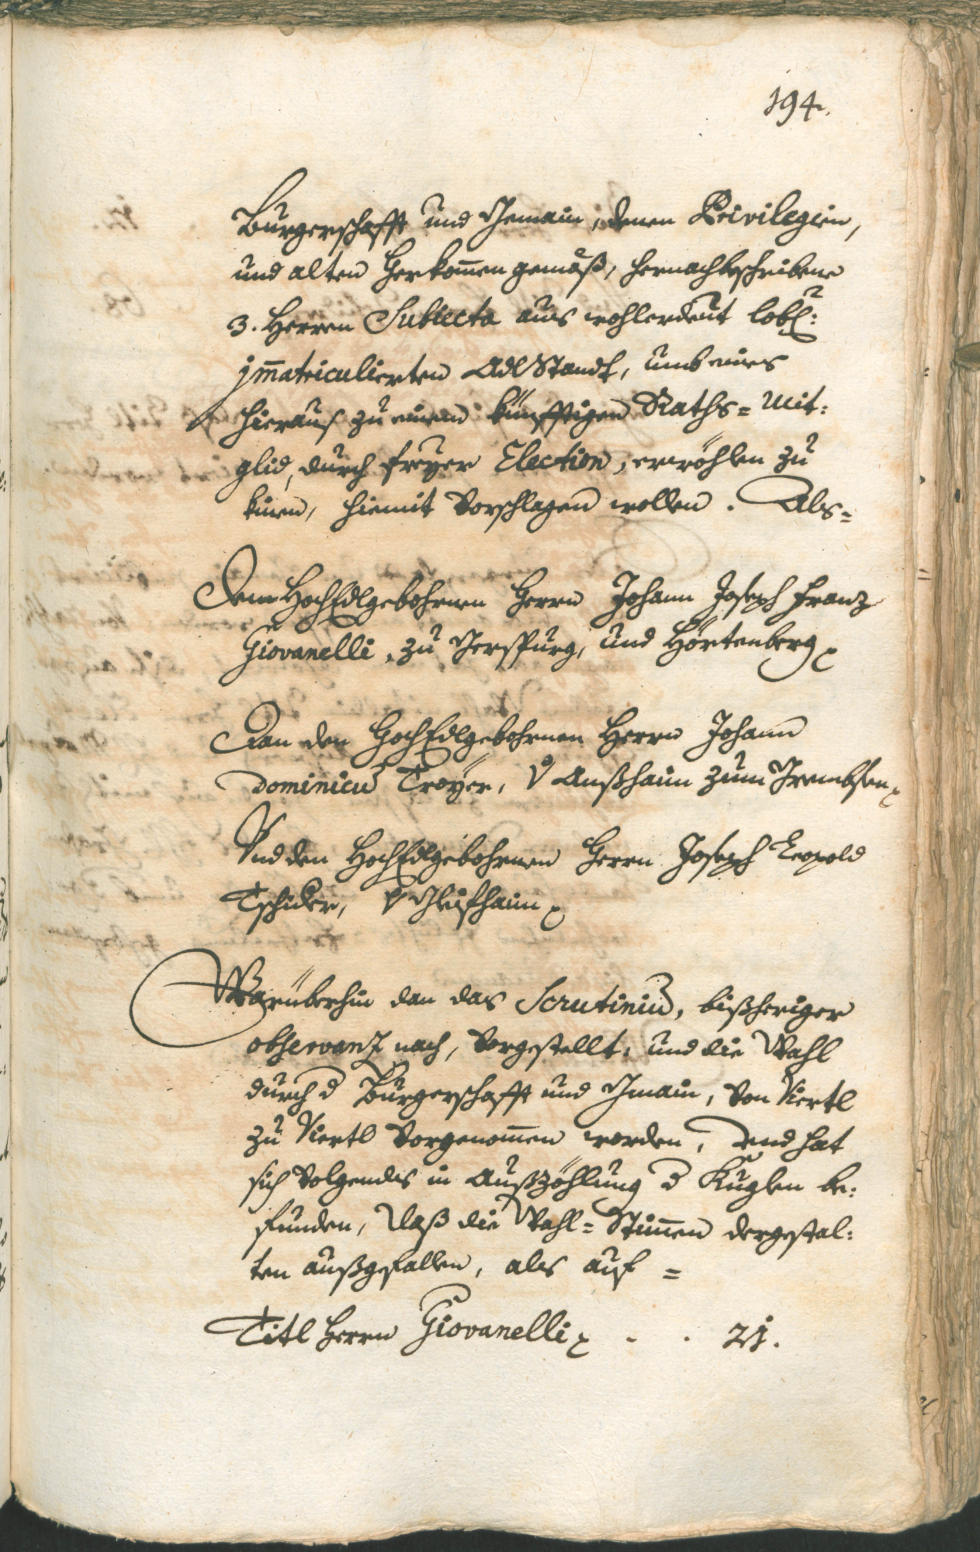 194.
Burgerschafft und Gemain, denen Privilegien,
und alten Herkom̅en gemäß, hernachbeschribene
3. Herren Subiecta aus wohlerdeut lobl:
jm̅atriculierten Adl Standt, umb eines
hieraus zu einem künfftigen Raths= Mit:
glid, durch freyer Election, erwöhlen zu
kinen, hiemit Vorschlagen wollen. Als=
Dem HochEdlgebohrnen Herrn Johann Joseph Franz
Giovanelli, zu Gerspurg, und Hörtenberg
Dan den HochEdlgebohrnen Herrn Johann
Dominicu̅ Troyer, V Aufhaim zum
Und den HochEdlgebohrnen Herrn Joseph Leopold
Tschider, V Gleifhaim
Warüberhin dan das Scrutiniu̅, bißheriger
observanz nach, Vorgestellt, und die Wahl
durch d Burgerschafft und Gmain, Von Viertl
zu Viertl Vorgenom̅en worden, und hat
sich Volgendes in Außzöhlung d Kuglen be:
funden, daß die Wahl= Stim̅en dergestal:
ten außgefallen, als auf =
Titl Herrn Giovanelli - . 21.